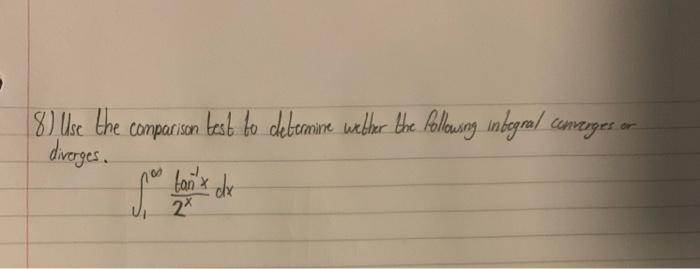 8) Use the comparison test to determine wether the following integral converges or
diverges.
∫₁^∞ tan⁻¹x / 2ˣ dx